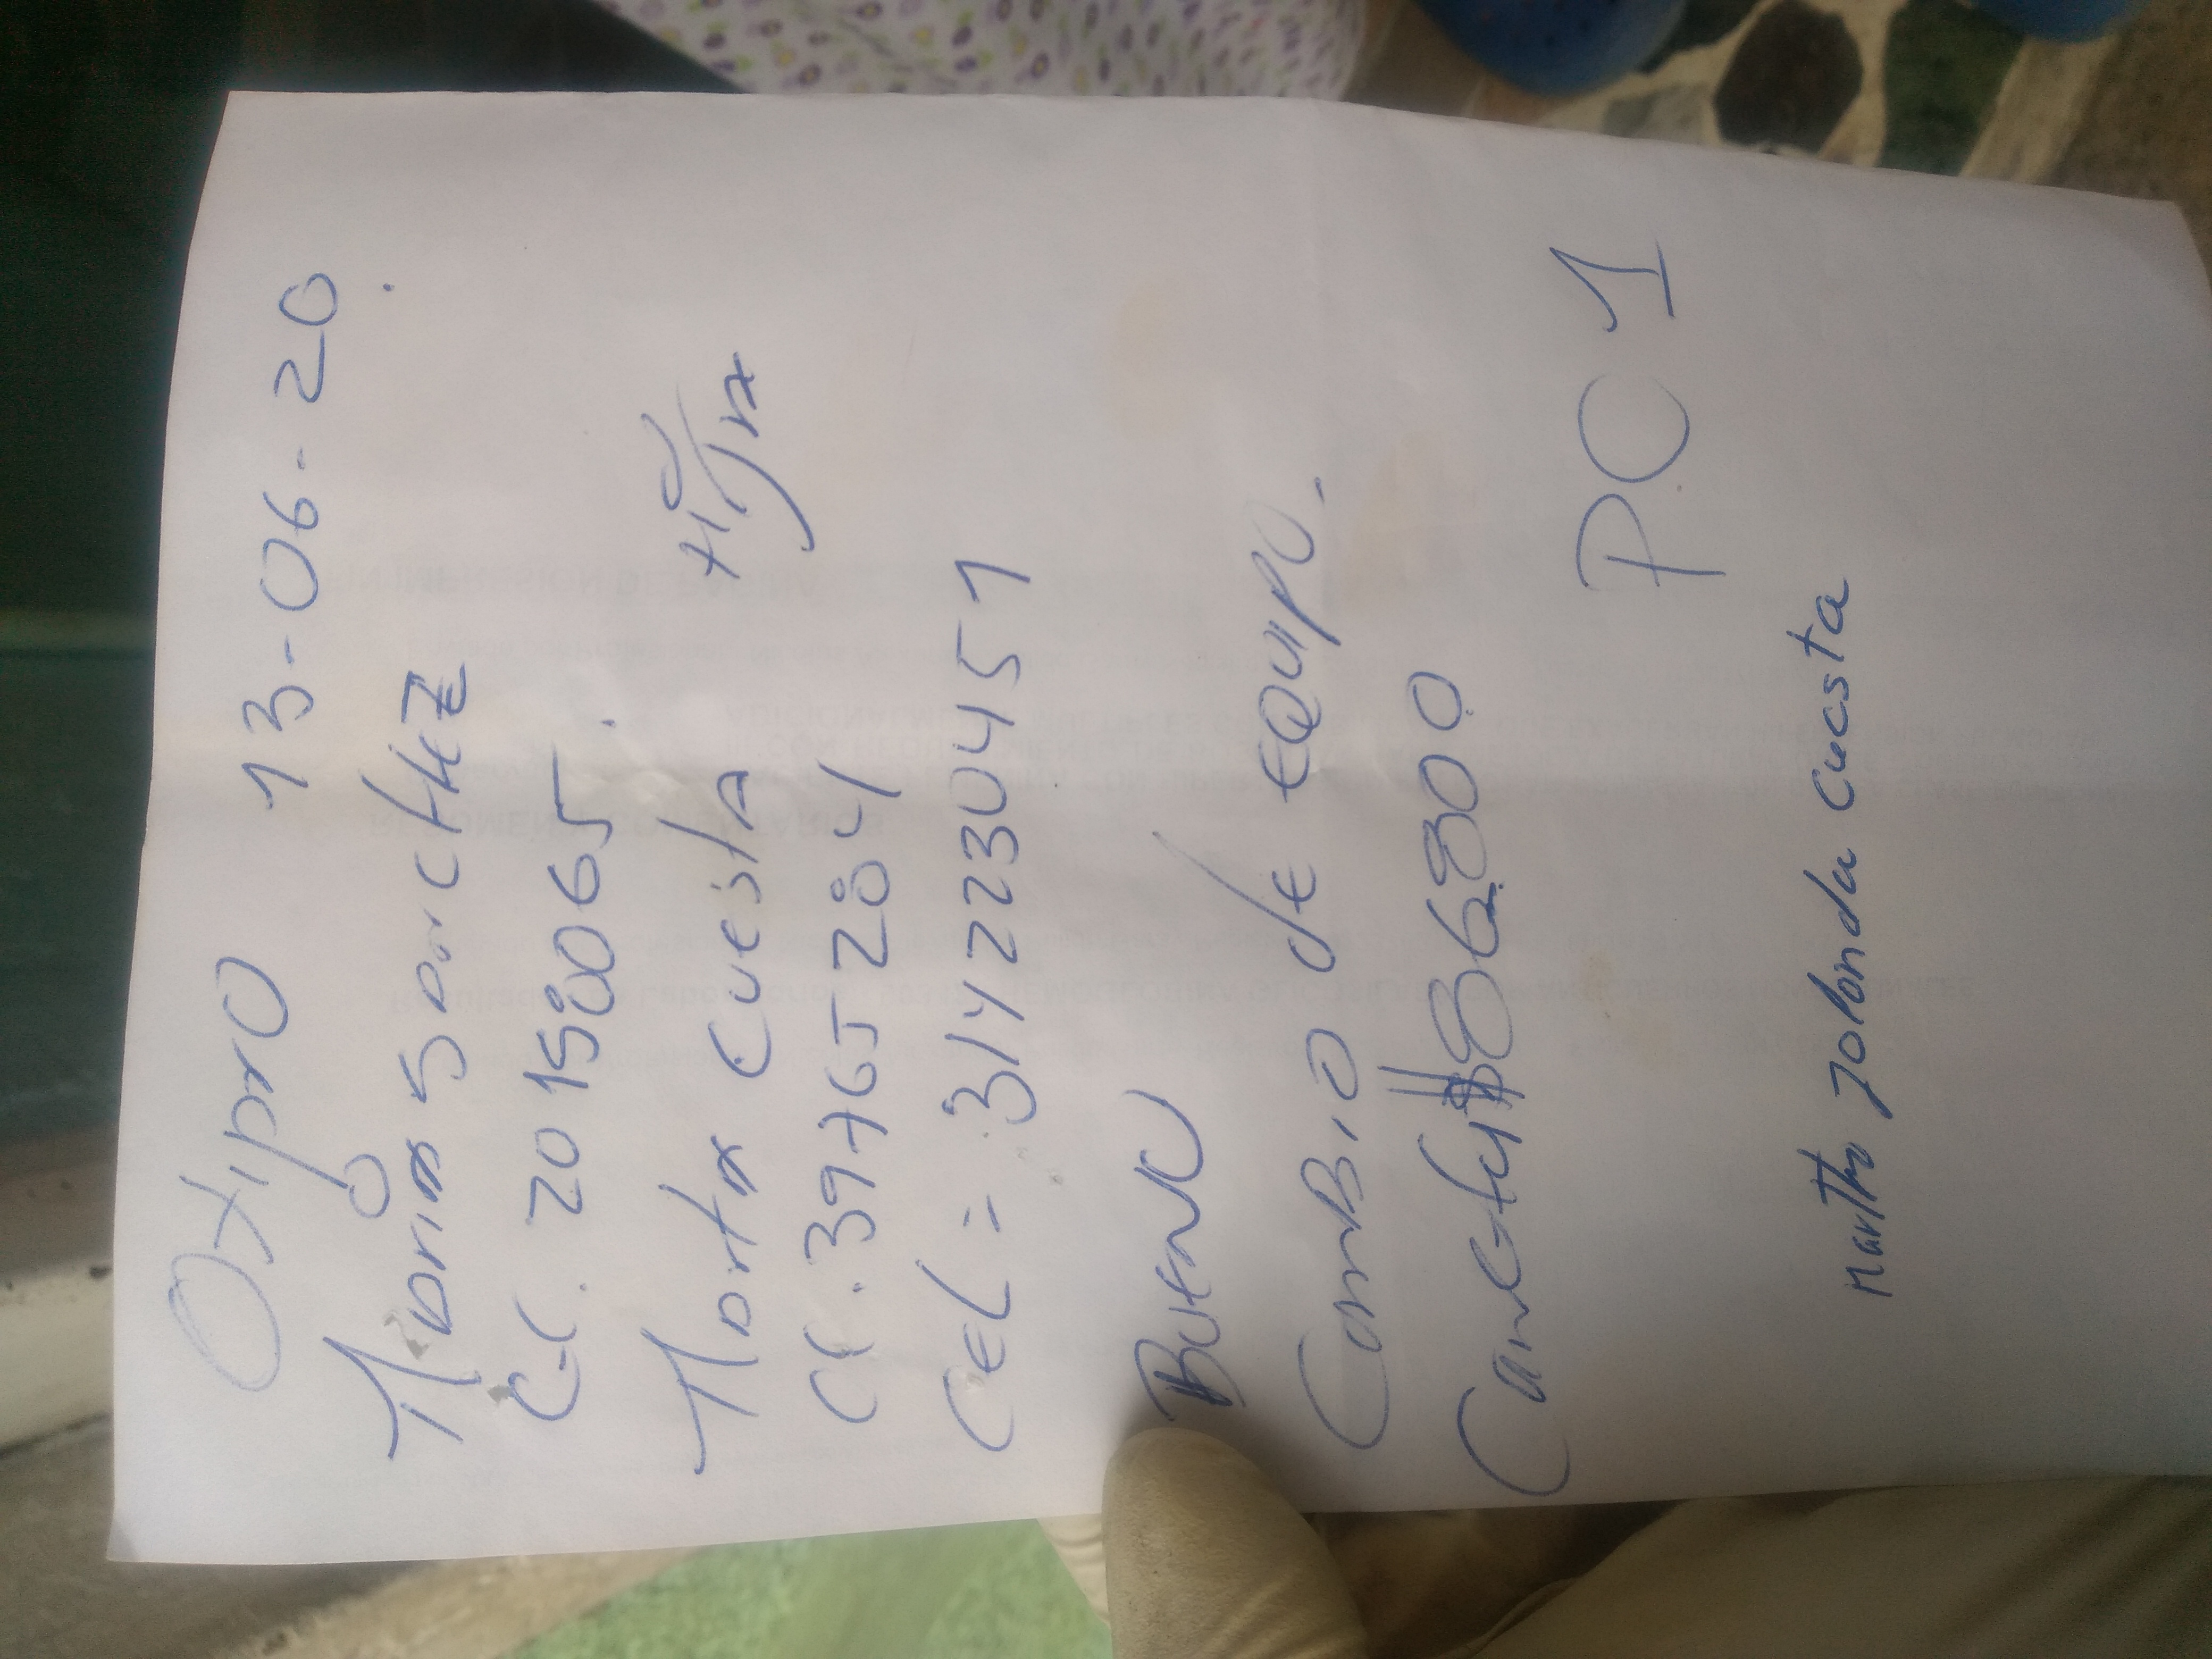 Oxipro 13-06-20.
Maria Sanchez
C.C. 20180065.
Marta Cuesta Hija
CC. 39765284
Cel = 3142230451
Bueno
Cambio de EQUIPO.
$ 86.300
PC 1
Martha Yolonda Cuesta